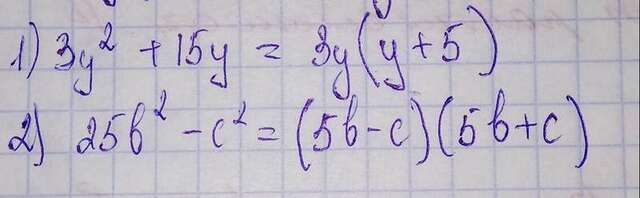 1) 3y² + 15y = 3y(y + 5)
2) 25b² - c² = (5b - c)(5b + c)